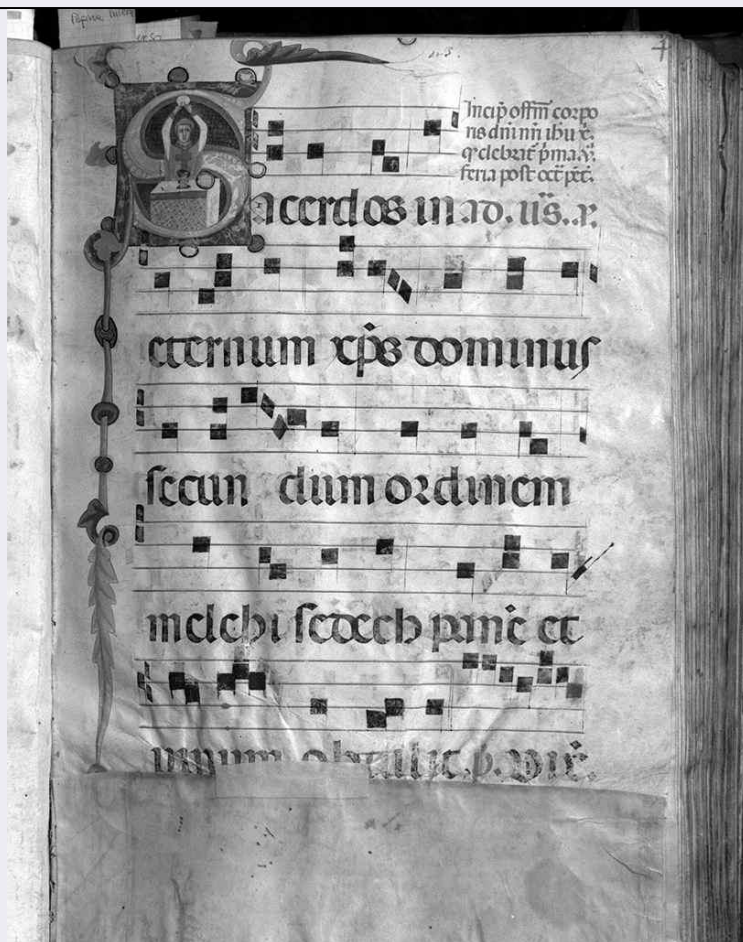 Pagina
n. 5.
Incip̄ offm̄ corpo
ris dn̄i nr̄i ihū x̄.
q̄ celebrat̄ p̄ma .v̄.
feria post oct̄ pēt.
Sacerdos in ad. us̄..v.
eternum xp̄s dominus
secun dum ordinem
melchi sedech panē et
uinum obtulit. p.